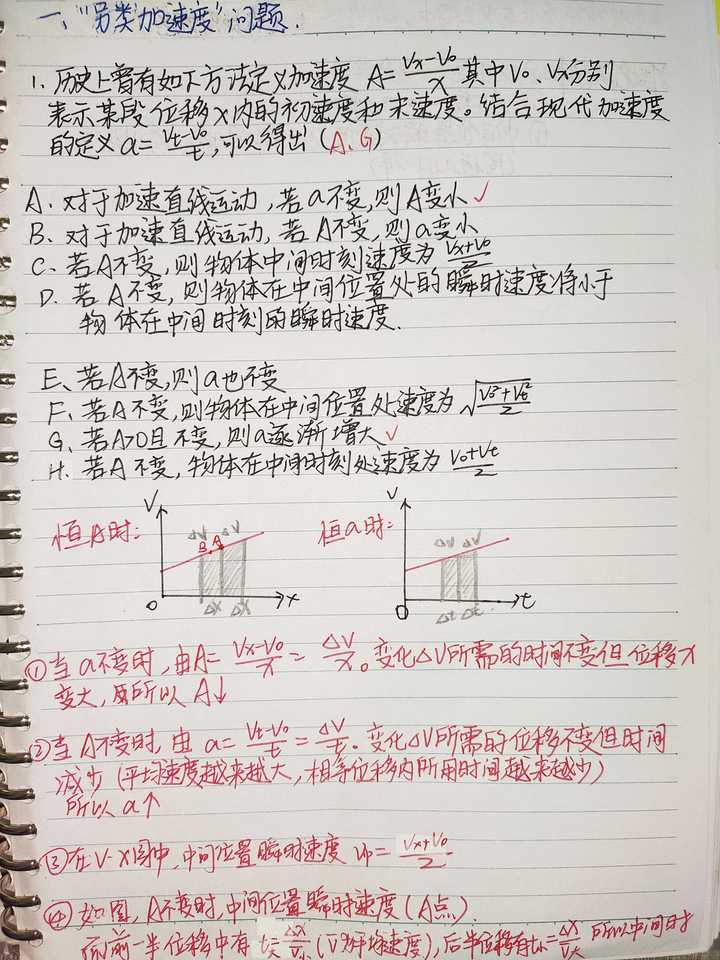 一、"另类加速度"问题.
1. 历史上曾有如下方法定义加速度 A=(Vx-V0)/x 其中V0、Vx分别
表示某段位移X内的初速度和末速度。结合现代加速度
的定义 a=(Vt-V0)/t,可以得出 (A、G)
A. 对于加速直线运动,若a不变,则A变小 ✓
B. 对于加速直线运动,若A不变,则a变小
C. 若A不变,则物体中间时刻速度为 (Vx+V0)/2
D. 若A不变,则物体在中间位置处的瞬时速度将小于
物体在中间时刻的瞬时速度.
E、若A不变,则a也不变
F、若A不变,则物体在中间位置处速度为 √((V0²+Vt²)/2)
G、若A>0且不变,则a逐渐增大 ✓
H、若A不变,物体在中间时刻处速度为 (V0+Vt)/2
恒A时: V ΔV ΔV B A O ΔX ΔX x
恒a时: V ΔV ΔV O Δt Δt t
①当a不变时,由A=(Vx-V0)/x=ΔV/x。变化ΔV所需的时间不变但位移x
变大,所以A↓
②当A不变时,由 a=(Vt-V0)/t=ΔV/t。变化ΔV所需的位移不变但时间
减少(平均速度越来越大,相等位移内所用时间越来越少)
所以a↑
③在V-X图中,中间位置瞬时速度 Vp=(Vx+V0)/2
④如图,A不变时,中间位置瞬时速度(A点).
而前一半位移中有 (V为平均速度),后半位移有 所以中间时